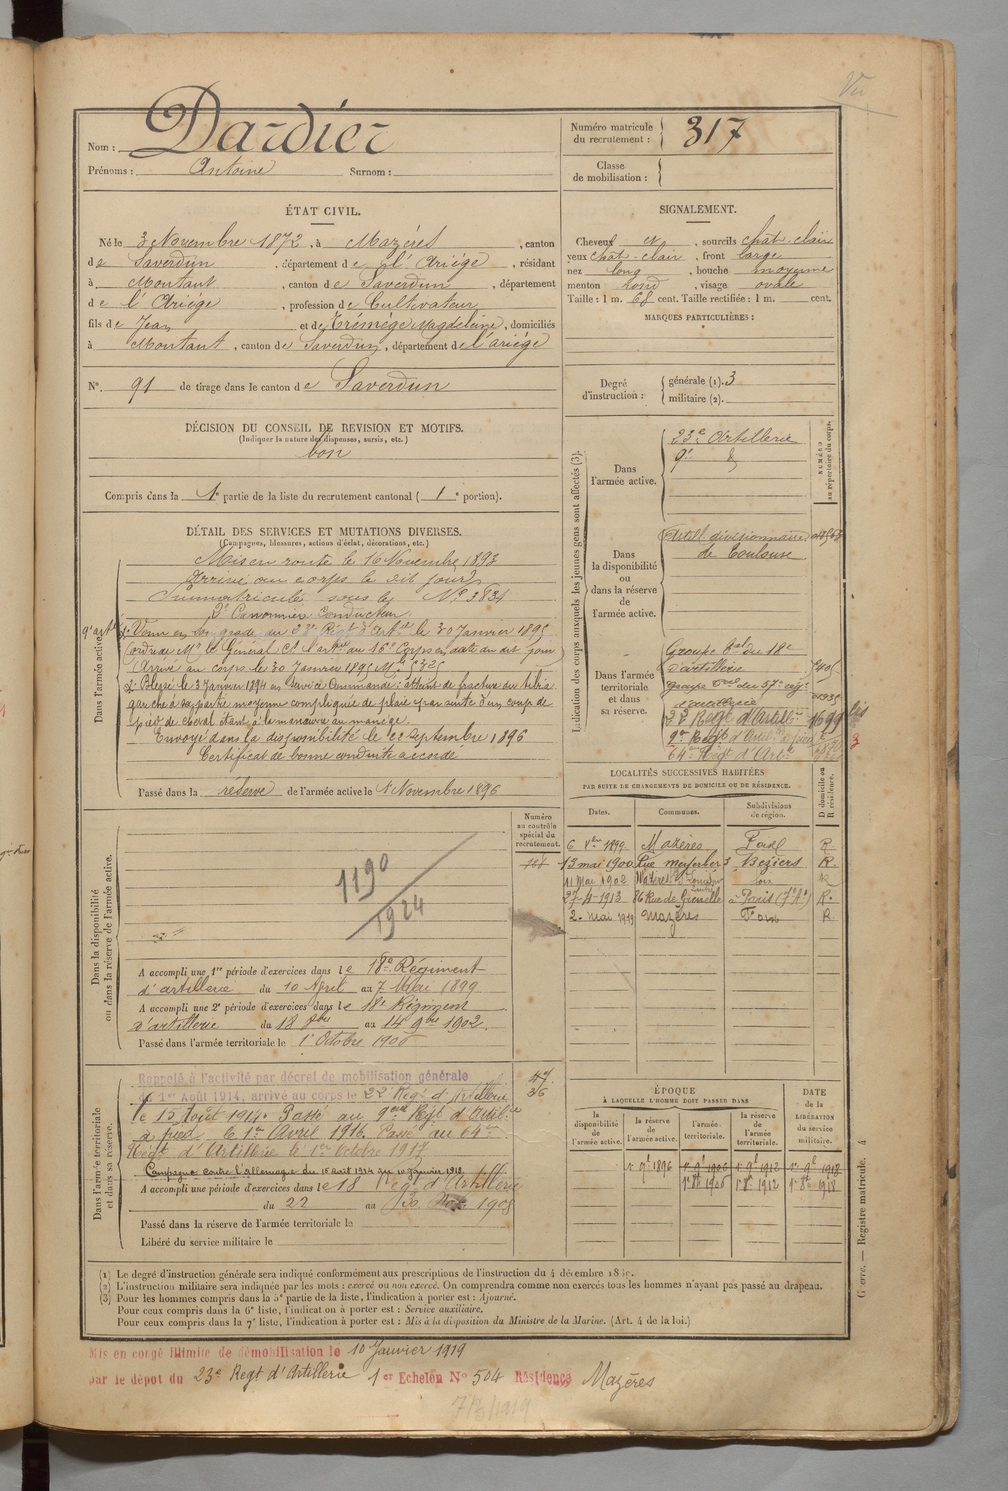 Vu
Nom : Dardier
Prénoms : Antoine Surnom :
Numéro matricule du recrutement : 317
Classe de mobilisation :
ÉTAT CIVIL.
Né le 3 Novembre 1872, à Mazères, canton
de Saverdun, département de l'Ariège, résidant
à Montaut, canton de Saverdun, département
de l'Ariège, profession de Cultivateur
fils de Jean et de Trémège Magdeleine, domiciliés
à Montaut, canton de Saverdun, département de l'ariège
N° 91 de tirage dans le canton de Saverdun
SIGNALEMENT.
Cheveux et, sourcils chât-clair
yeux chât-clair, front large
nez long, bouche moyenne
menton rond, visage ovale
Taille : 1 m. 68 cent. Taille rectifiée : 1 m. cent.
MARQUES PARTICULIÈRES :
Degré d'instruction : générale (1). 3
militaire (2).
DÉCISION DU CONSEIL DE REVISION ET MOTIFS.
(Indiquer la nature des dispenses, sursis, etc.)
bon
Compris dans la 1e partie de la liste du recrutement cantonal ( 1e portion).
DÉTAIL DES SERVICES ET MUTATIONS DIVERSES.
(Campagnes, blessures, actions d'éclat, décorations, etc.)
Dans l'armée active.
Mis en route le 16 Novembre 1893
Arrivé au corps le dit jour
Immatriculé sous le N° 3834
2e Canonnier Conducteur
9e artie
Venu en son grade au 23e Régt d'Artie le 30 Janvier 1895
(ordre de Mr le Général Ct l'artie du 16e Corps en date du dit jour)
Arrivé au corps le 30 Janvier 1895 Mle 5325
2° Blessé le 3 Janvier 1894 en service Commandé : atteint de fracture du tibia
gauche à sa partie moyenne compliquée de plaie par suite d'un coup de
pied de cheval étant à la manœuvre au manège.
Envoyé dans la disponibilité le 22 Septembre 1896
Certificat de bonne conduite accordé
Passé dans la réserve de l'armée active le 1 Novembre 1896
Indication des corps auxquels les jeunes gens sont affectés (3).
NUMÉRO au répertoire du corps.
Dans l'armée active.
23e Artillerie
9e d°
Dans la disponibilité ou dans la réserve de l'armée active.
Artill. divisionnaire
de Toulouse
Dans l'armée territoriale et dans sa réserve.
Groupe tal du 18e
d'artillerie
groupe teal du 57e régt
d'artillerie
22 Regt d'Artillie 1699
9e Régt d'Artie à pied
64e Régt d'Artie
LOCALITÉS SUCCESSIVES HABITÉES
PAR SUITE DE CHANGEMENTS DE DOMICILE OU DE RÉSIDENCE.
Dates. Communes. Subdivisions de région. D domicile ou R résidence.
6 1899 Mazères Foix R
13 mai 1900 Rue meyerber 3 Béziers R.
11 Mai 1902 Mazères foix R
27-4-1913 86 Rue de Grenelle à Paris (7e At) R.
2. mai 1919 Mazères Foix R
Dans la disponibilité ou dans la réserve de l'armée active.
Numéro au contrôle spécial du recrutement.
1190
1924
A accompli une 1re période d'exercices dans le 18e Régiment
d'artillerie du 10 Avril au 7 Mai 1899
A accompli une 2e période d'exercices dans le 18e Régiment
d'artillerie du 18 8bre au 14 9bre 1902.
Passé dans l'armée territoriale le 1er Octobre 1906
Dans l'armée territoriale et dans sa réserve.
Rappelé à l'activité par décret de mobilisation générale
du 1er Août 1914, arrivé au corps le 22e Régt d'Artillerie
le 15 Août 1914. Passé au 9eme Régt d'Artill.ie
à pied le 1er Avril 1916. Passé au 64me
Régt d'Artillerie le 1er Octobre 1917.
Campagne contre l'allemagne du 15 août 1914 au 10 janvier 1919.
A accompli une période d'exercices dans le 18 Régt d'Artillerie
du 22 au 30 1908
Passé dans la réserve de l'armée territoriale le
Libéré du service militaire le
47.
36
ÉPOQUE
À LAQUELLE L'HOMME DOIT PASSER DANS
la disponibilité de l'armée active. la réserve de l'armée active. l'armée territoriale. la réserve de l'armée territoriale.
DATE de la LIBÉRATION du service militaire.
1er 9e 1896 1er 9e 1906 1er 9e 1912 1er 9e 1918
1er 8e 1906 1er 8e 1912 1er 8e 1918
Guerre. — Registre matricule. 4
(1) Le degré d'instruction générale sera indiqué conformément aux prescriptions de l'instruction du 4 décembre 18
(2) L'instruction militaire sera indiquée par les mots : exercé ou non exercé. On comprendra comme non exercés tous les hommes n'ayant pas passé au drapeau.
(3) Pour les hommes compris dans la 5e partie de la liste, l'indication à porter est : Ajourné.
Pour ceux compris dans la 6e liste, l'indication à porter est : Service auxiliaire.
Pour ceux compris dans la 7e liste, l'indication à porter est : Mis à la disposition du Ministre de la Marine. (Art. 4 de la loi.)
Mis en congé illimité de démobilisation le 10 Janvier 1919
par le dépot du 23e Regt d'Artillerie 1er Echelon N° 504 Résidence Mazères